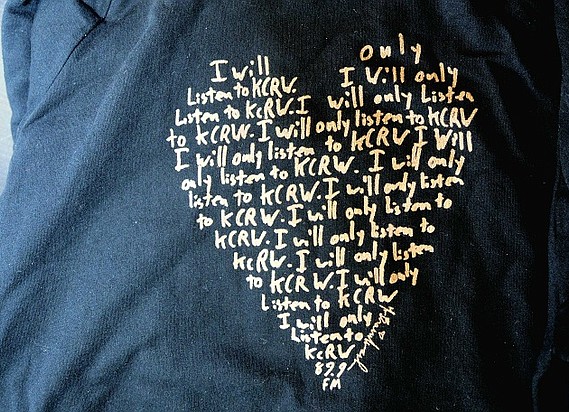 only
I will I will only
Listen to KCRW.
Listen to KCRW. I will only Listen
to KCRW. I will only listen to KCRW
I will only listen to KCRW. I will
only listen to KCRW. I will only
listen to KCRW. I will only listen
to KCRW. I will only listen to
KCRW. I will only listen to
KCRW. I will only listen
to KCRW. I will only
Listen to KCRW
I will only
Listen to
KCRW
89.9
FM